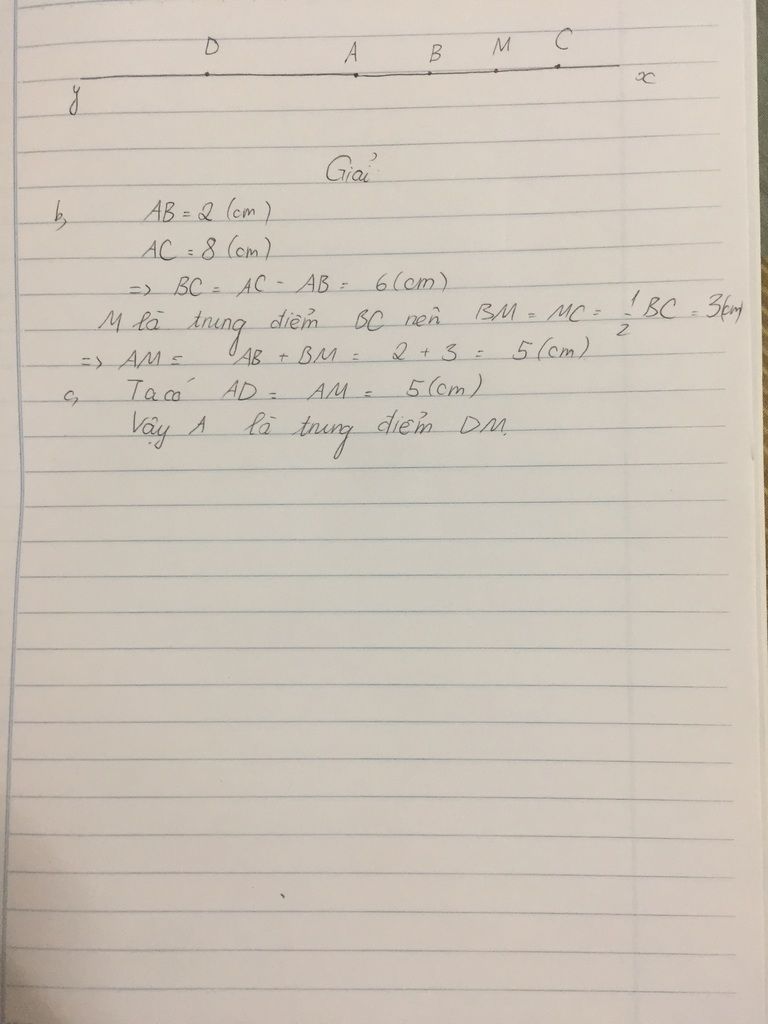 D A B M C
y x
Giải
b, AB = 2 (cm)
AC = 8 (cm)
=> BC = AC - AB = 6 (cm)
M là trung điểm BC nên BM = MC = 1/2 BC = 3(cm)
=> AM = AB + BM = 2 + 3 = 5 (cm)
c, Ta có AD = AM = 5 (cm)
Vậy A là trung điểm DM.